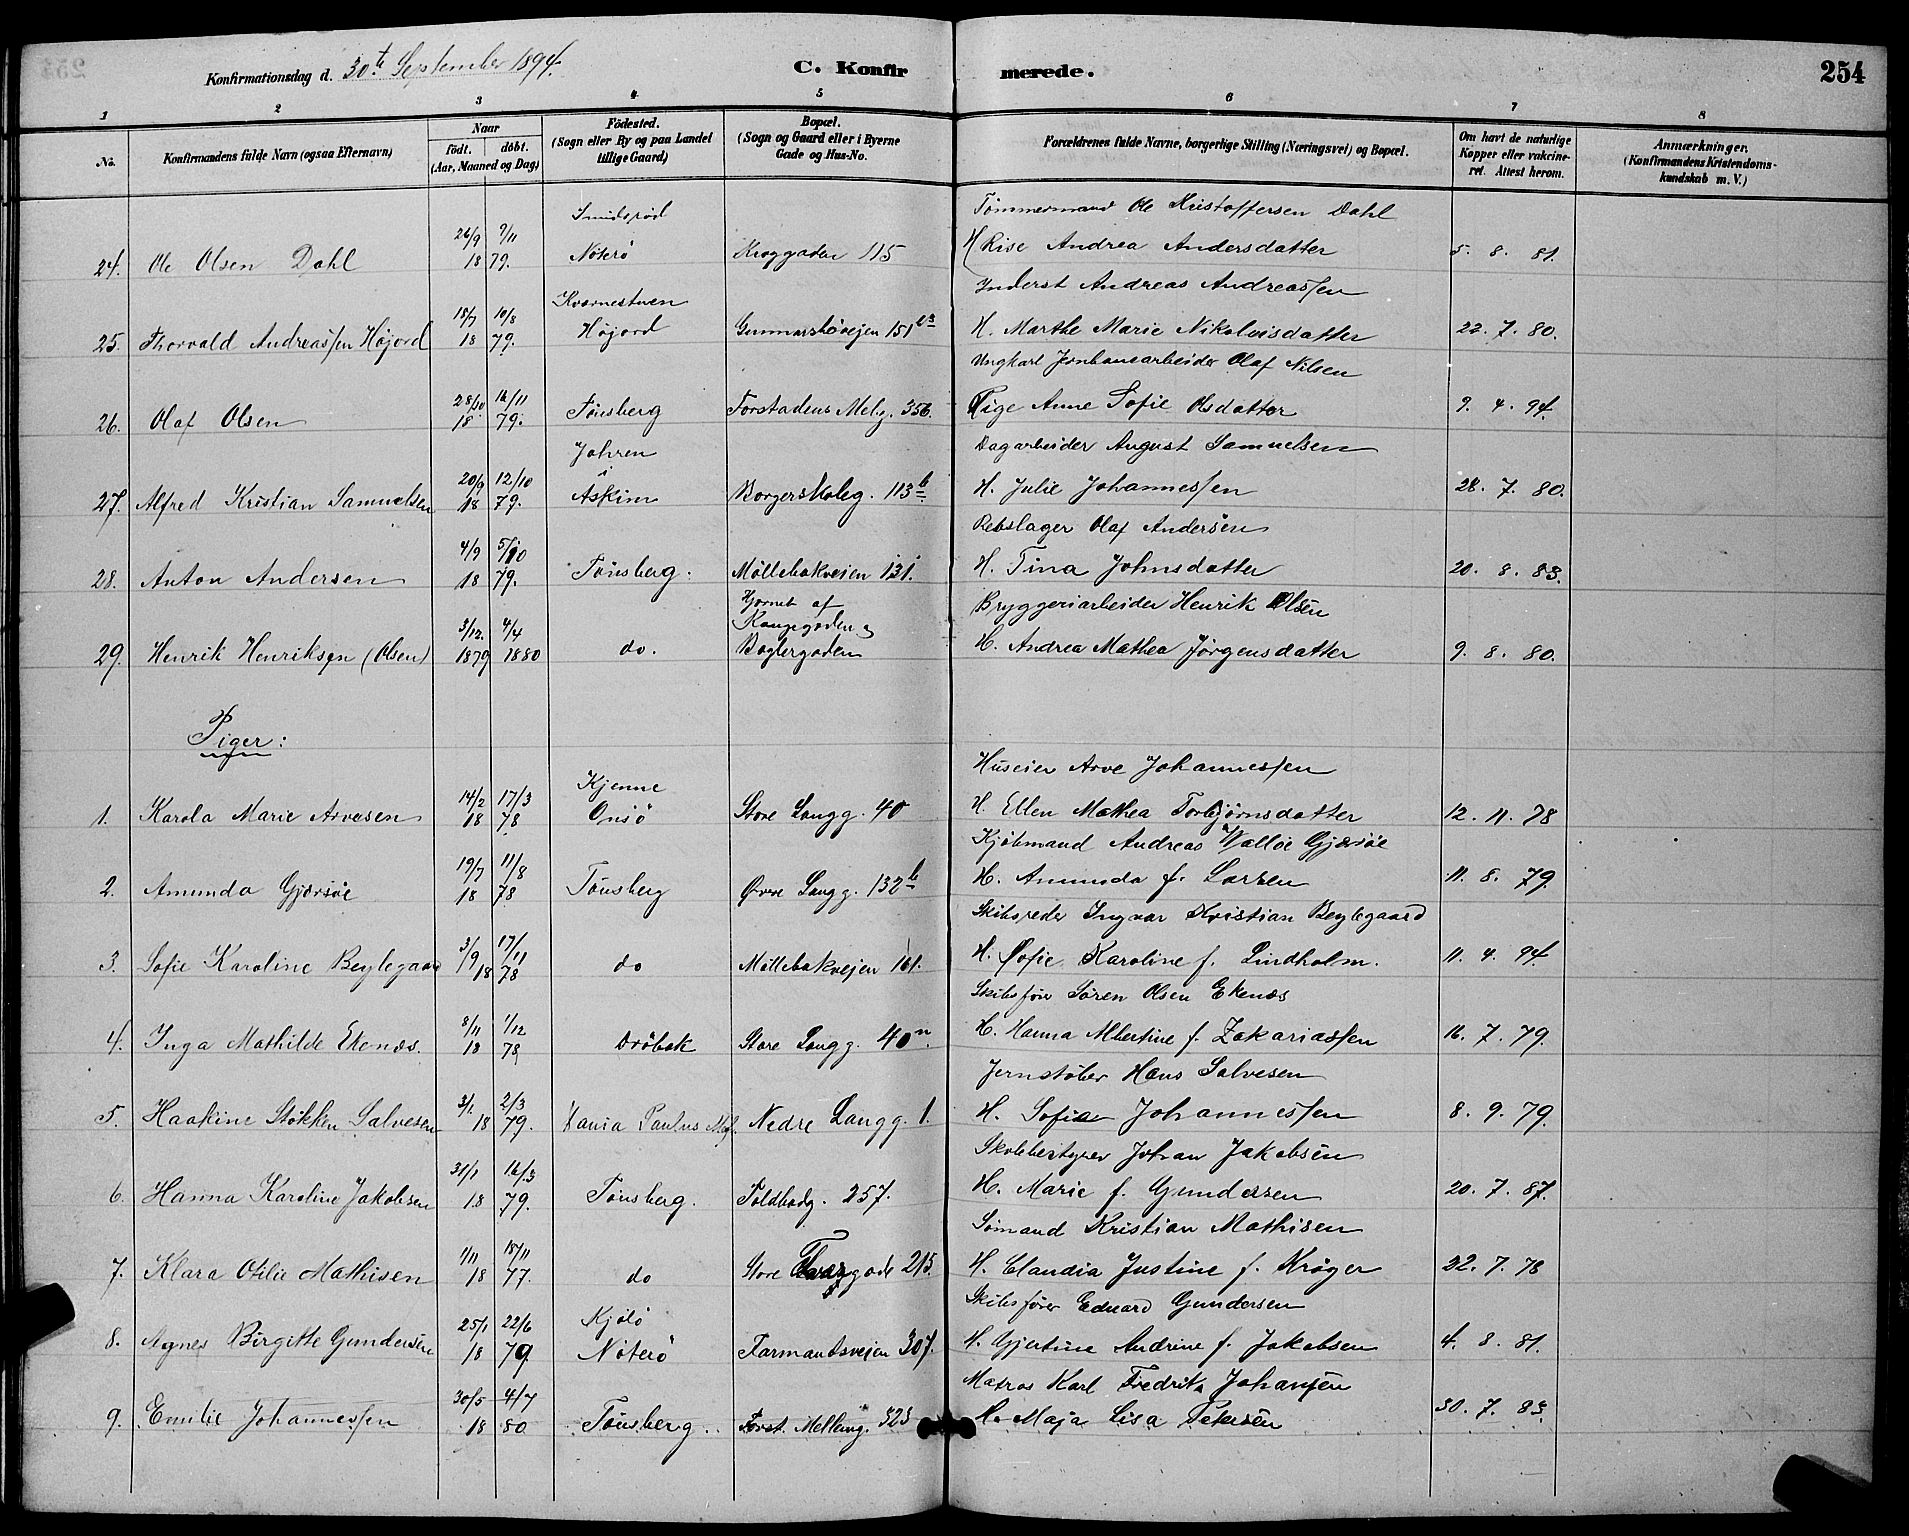 Konfirmationsdag d. 30te September 1894. C. Konfirmerede. 254
1 2 3 4 5 6 7 8
No. Konfirmandens fulde Navn (ogsaa Efternavn) Naar født. døbt. (Aar, Maaned og Dag) Fødested. (Sogn eller By og paa Landet tillige Gaard) Bopæl. (Sogn og Gaard eller i Byerne Gade og Hus-No. Forældrenes fulde Navne, borgerlige Stilling (Næringsvei) og Bopæl. Om havt de naturlige Kopper eller vakcineret. Attest herom. Anmærkninger. (Konfirmandens Kristendomskundskab m. V.)
Smidsrød Tømmermand Ole Kristoffersen Dahl
24. Ole Olsen Dahl 26/9 18 9/11 79. Nøterø 115 H Rise Andrea Andersdatter 5. 8. 81.
Kværnestuen Inderst Andreas Andreassen
25. Thorvald Andreassen Højord 18/7 18 10/8 79. Højord Gunnarsbøvejen 151 H. Marthe Marie Nikolaisdatter 22. 7. 80.
Ungkarl Jernbanearbeider Olaf Nilsen
26. Olaf Olsen 28/10 18 16/11 79. Tønsberg Forstadens Melg. 356. Pige Anne Sofie Olsdatter 9. 4. 94.
Johren i Dagarbeider August Samuelsen
27. Alfred Kristian Samuelsen 20/9 18 12/10 79. Askim Borgerskoleg. 113 b H. Julie Johannessen 28. 7. 80.
Rebslager Olaf Andersen
28. Anton Andersen 4/9 18 5/10 79. Tønsberg. Møllebakveien 131. H. Tina Johnsdatter 20. 8. 83.
Hjørnet af Kongegaden & Bryggeriarbeider Henrik Olsen
29. Henrik Henriksen (Olsen) 3/12. 1879 4/4 1880 do. Baglergaden H. Andrea Mathea Jørgensdatter 9. 8. 80.
Piger:
Kjenne Huseier Arve Johannessen
1. Karola Marie Arvesen 14/2 18 17/3 78 Onsø Store Langg. 40 H. Ellen Mathea Torbjørnsdatter 12. 11. 78
Kjøbmand Andreas Walløe Gjersøe
2. Amunda Gjersøe 19/7 18 11/8 78 Tønsberg Øvre Langg. 132 b H. Amunda f. Larsen 11. 8. 79.
Skibsreder Ingvar Kristian Beylegaard
3. Sofie Karoline Beylegaard 3/9 18 17/11 78 do Møllebakvejen 161. H. Sofie Karoline f. Lindholm. 11. 4. 94.
Skibsfører Søren Olsen Ekenæs
4. Inga Mathilde Ekenæs. 8/11 18 1/12 78 Drøbak Store Langg. 40 n. H. Hanna Albertine f. Zakariassen 16. 7. 79.
Jernstøber Hans Salvesen
5. Haakine Støkken Salvesen 18 2/3 79. Xania Paulus Mgh. Nedre Langg. 1. H. Sofie Johannessen 8. 9. 79.
Skolebestyrer Johan Jakobsen
6. Hanna Karoline Jakobsen 31/1 18 16/3 79. Tønsberg. Toldbodg. 257. H. Marie f. Gundersen 20. 7. 87.
Sømand Kristian Mathisen
7. Klara Otilie Mathisen 1/11 18 18/11 77. do Store Færgegade 215. H. Claudia Justine f. Krøger 22. 7. 78
Kjølø Skibsfører Eduard Gundersen
8. Agnes Birgitte Gundersen 25/1 18 22/6 79 Nøterø Farmandsveien 307. H. Gjertine Andrine f. Jakobsen 4. 8. 81.
Matros Karl Fredrik Johansen
9. Emilie Johannessen 30/5 18 4/7 80 Tønsberg. Forst. Mellemg. 323 H. Maja Lisa Petersen 30. 7. 83.